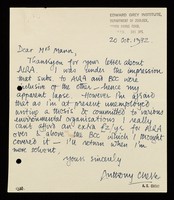 20 Oct. 1982
Dear Mrs Mann,
Thank you for your letter about
ALRA. I was under the impression
that subs to ALRA and BCC were
inclusive of the other - hence my
apparent lapse. However I'm afraid
that as I'm at present unemployed
writing a thesis & committed to various
environmental organisations I really
can't afford any extra for ALRA
over & above the BCC which I thought
covered it - I'll return when I'm
more solvent.
yours sincerely
Anthony